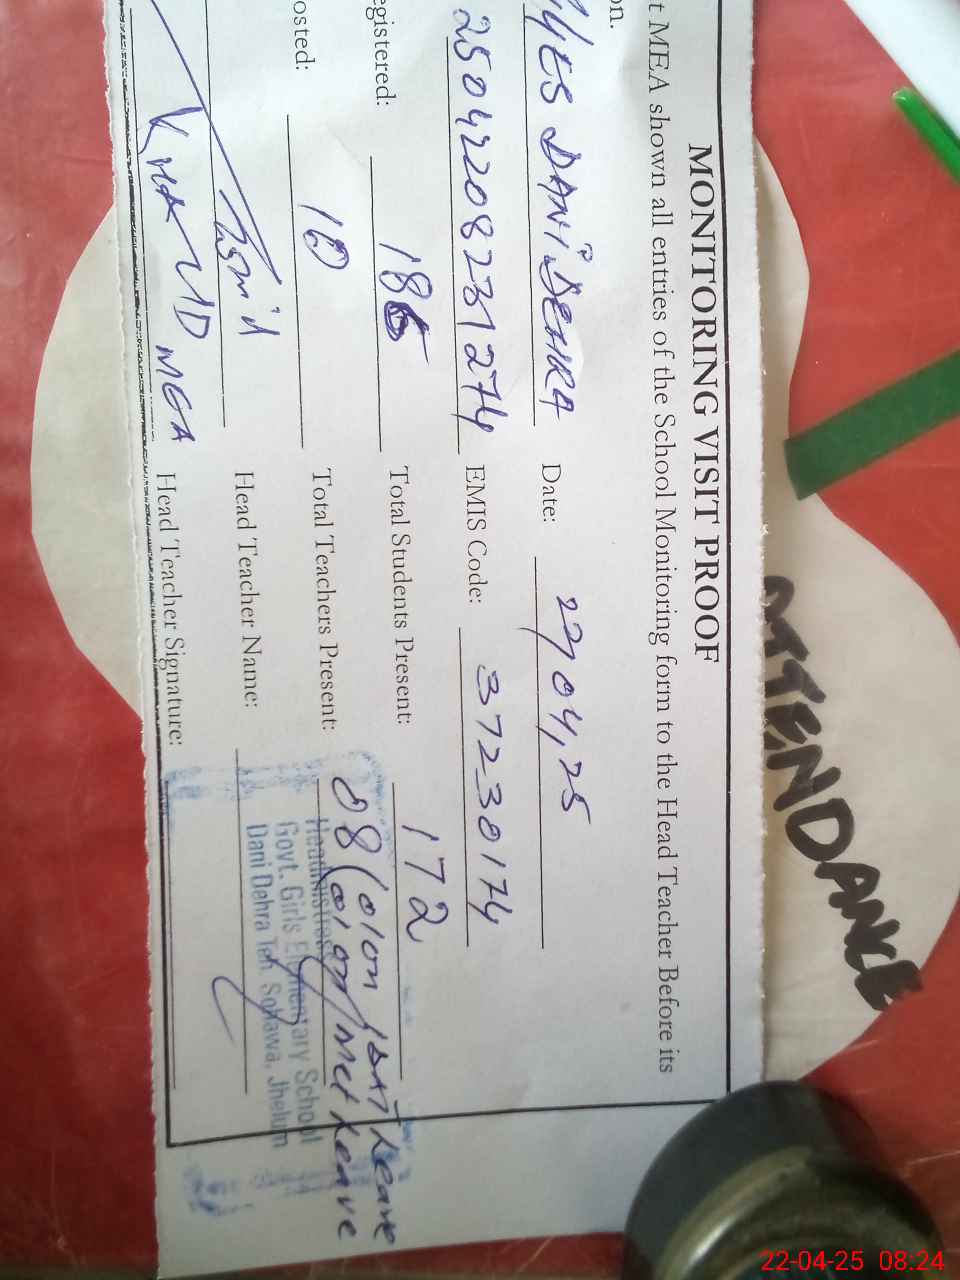 MONITORING VISIT PROOF
t MEA shown all entries of the School Monitoring form to the Head Teacher Before its
on.
DANI DEHRA Date: 22,04,25
EMIS Code: 37230174
egistered: 186 Total Students Present: 172
osted: 10 Total Teachers Present: 08 (01 on Leave
01 on Leave
Head Teacher Name:
MEA Head Teacher Signature:
Headmistress
Govt. Girls Elementary School
Dani Dehra Teh. Sohawa, Jhelum
ATTENDANCE
22-04-25 08:24